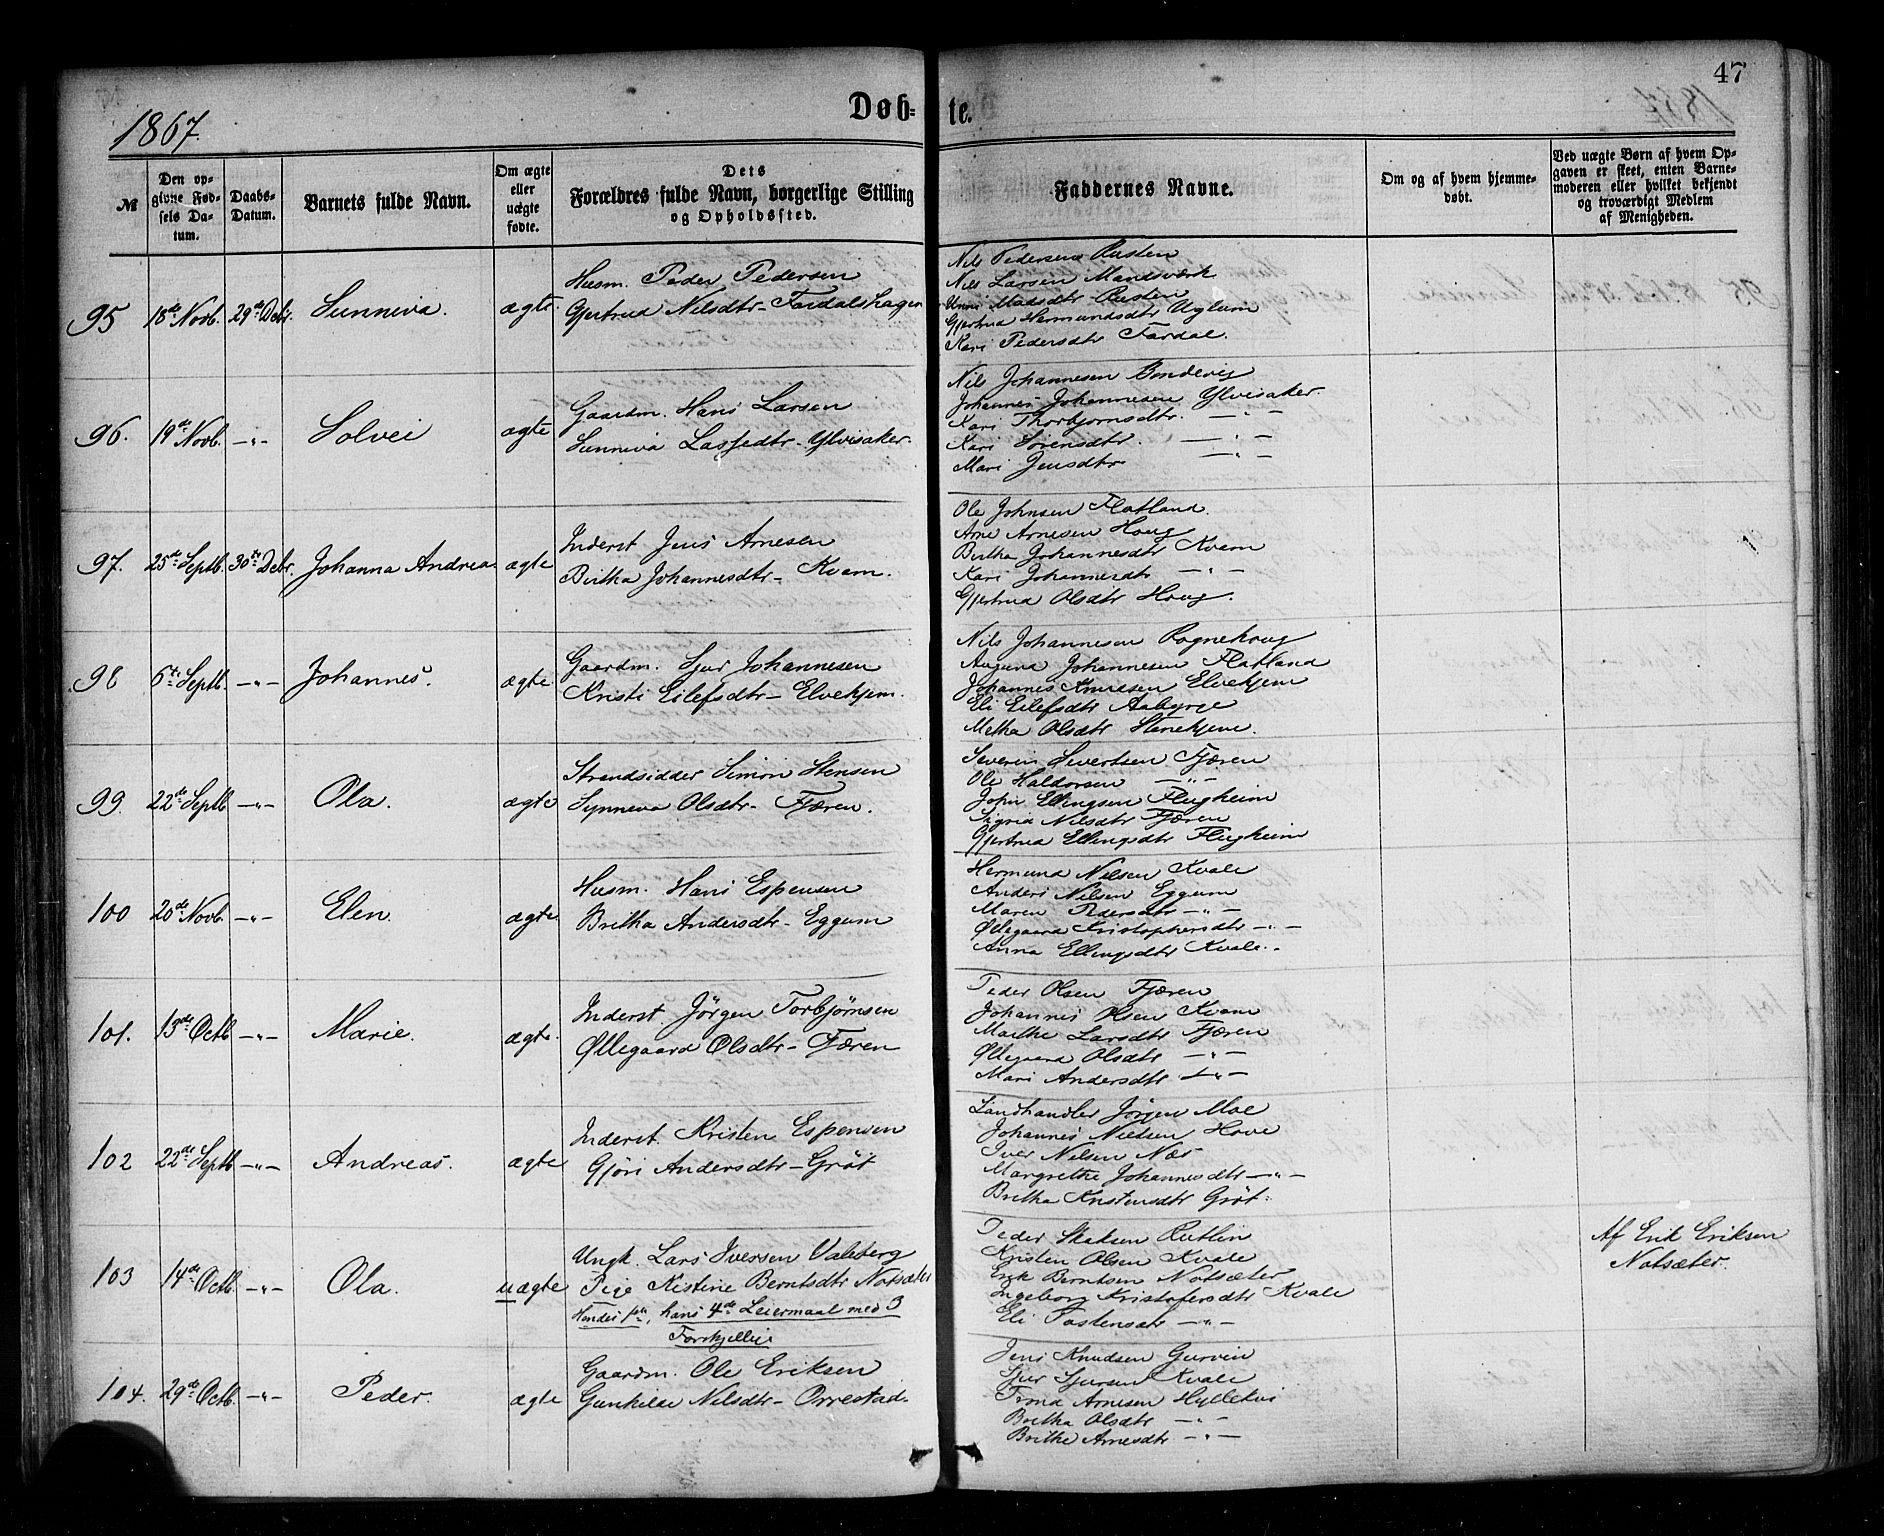 47
1867.
Døbte.
№
Den opgivne Fødsels Datum.
Daabs-Datum.
Barnets fulde Navn.
Om ægte eller uægte fødte.
Dets Forældres fulde Navn, borgerlige Stilling og Opholdssted.
Faddernes Navne.
Om og af hvem hjemmedøbt.
Ved uægte Børn af hvem Opgaven er skeet, enten Barnemoderen eller hvilket bekjendt og troværdigt Medlem af Menigheden.
95 18de Novb. 29de Decbr. Sunneva. ægte
Husm. Peder Pedersen
Gjertrud Nilsdtr - Fardalshagen
Nils Pedersen Rusten
Nils Larsen Mundsværk
Unni Madsdtr Rusten
Gjertrud Hermundsdtr Uglum
Kari Pedersdtr Fardal.
96. 19de Novb. -"- Solvei ægte
Gaardm. Hans Larsen
Sunneva Lassedtr - Ylvisaker.
Nils Johannesen Bondevig
Johannes Johannesen Ylvisaker.
Kari Thorbjornsdtr. -"-
Kari Sørensdtr. -"-
Mari Jensdtr -"-
97. 25de Septb. 30te Decbr. Johanna Andrea. ægte
Inderst Jens Arnesen
Birtha Johannesdtr - Kvam.
Ole Johnsen Flatland.
Arne Arnesen Houg
Birtha Johannesdtr Kvam
Kari Johannesdtr -"-
Gjertrud Olsdtr Houg.
98 6te Septb. -"- Johannes. ægte
Gaardm. Sjur Johannesen
Kristi Eilefsdtr - Elvekjem.
Nils Johannesen Rognehoug
Augund Johannesen Flatland
Johannes Knudsen Elvekjem
Eli Eilefsdtr Aaberge
Metha Olsdtr Stenekjem.
99. 22de Septb -"- Ola. ægte
Strandsidder Simon Stensen
Synneva Olsdtr - Fjæren.
Severin Sivertsen Fjæren
Ole Haldorsen -"-
John Ellingsen Flugheim
Sigrid Nilsdtr Fjæren
Gjertrud Ellingsdtr Flugheim
100 20de Novb. -"- Elen. ægte
Husm. Hans Espensen
Britha Andersdtr - Eggum
Hermund Nilsen Kvale
Anders Nilsen Eggum
Maren Pedersdtr -"-
Øllegaard Kristophersdtr -"-
Anna Ellingsdtr Kvale.
101. 13de Octb -"- Marie. ægte.
Inderst Jörgen Torbjørnsen
Øllegaard Olsdtr - Fjæren
Peder Olsen Fjæren
Johannes Olsen Kvam
Marthe Larsdtr Fjæren
Øllegaard Olsdtr -"-
Mari Andersdtr -"-
102 22de Septb -"- Andreas. ægte
Inderst. Kristen Espensen
Gjöri Andersdtr - Gröt
Landhandler Jörgen Moe
Johannes Nielsen Hove
Iver Nilsen Næs
Margrethe Johannesdtr -"-
Britha Kristensdtr Gröt.
103 14de Octb. -"- Ola. uægte
Ungk. Lars Iversen Valeberg
Pige Kistine Berntsdtr Notsæter
Hendes 1ste, hans 4de Leiermaal med 3
Forskjellige
Peder Staksen Rutlin
Kristen Olsen Kvale
Erik Berntsen Notsæter
Ingeborg Kristofersdtr Kvale
Eli Tostensdtr -"-
Af Erik Eriksen
Notsæter.
104. 29de Octb. -"- Peder. ægte
Gaardm. Ole Eriksen
Gunhilde Nilsdtr - Orrestad.
Jens Knudsen Gurvin
Sjur Sjursen Kvale
Trond Arnesen Hyllekvi
Britha Olsdtr -"-
Brithe Arnesdtr -"-